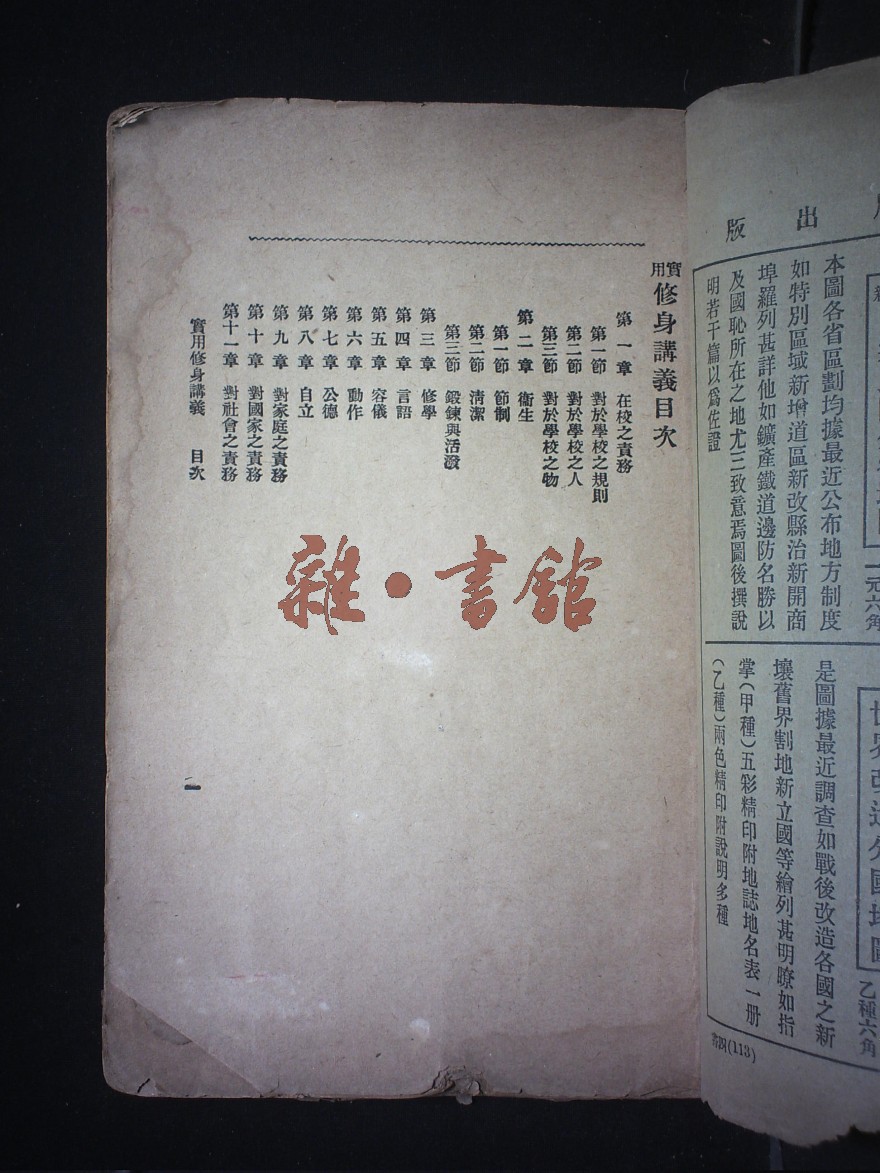 出版
本圖各省區劃均據最近公布地方制度
如特別區域新增道區新改縣治新開商
埠羅列甚詳他如鑛產鐵道邊防名勝以
及國恥所在之地尤三致意焉圖後撰說
明若干篇以爲佐證
一元六角
世界改造分國地圖
乙種六角
是圖據最近調查如戰後改造各國之新
壤舊界割地新立國等繪列甚明瞭如指
掌(甲種)五彩精印附地誌地名表一册
(乙種)兩色精印附說明多種
(113)
實用修身講義目次
第一章 在校之責務
第一節 對於學校之規則
第二節 對於學校之人
第三節 對於學校之物
第二章 衛生
第一節 節制
第二節 清潔
第三節 鍛鍊與活潑
第三章 修學
第四章 言語
第五章 容儀
第六章 動作
第七章 公德
第八章 自立
第九章 對家庭之責務
第十章 對國家之責務
第十一章 對社會之責務
實用修身講義 目次
一
雜·書館